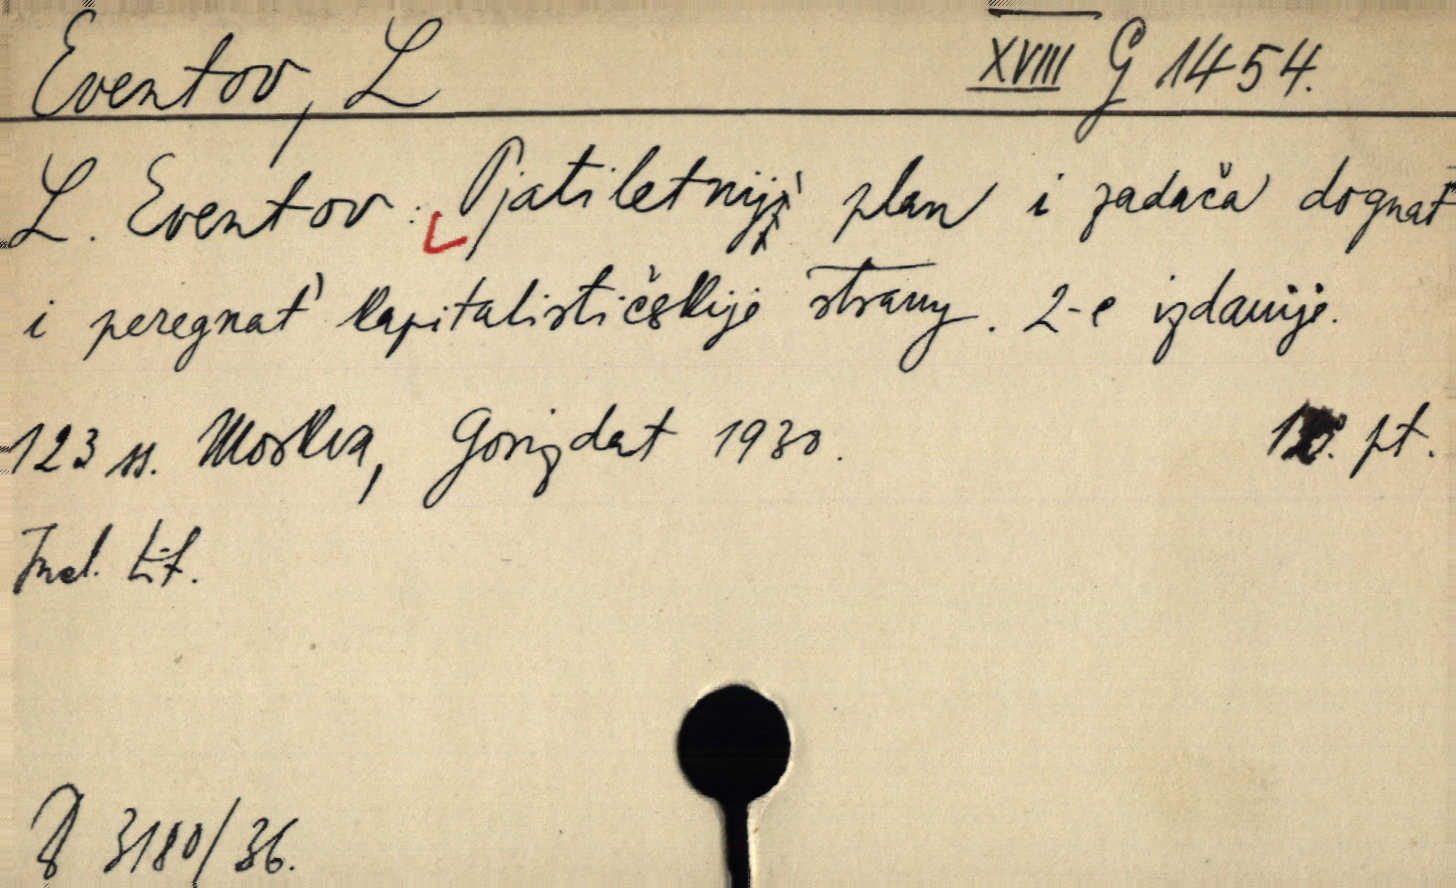 Eventov, L XVIII G 1454.
L. Eventov: Pjatiletnij plan i zadača dognat'
i peregnat' kapitalističeskije strany. 2-e izdanije.
123 ss. Moskva, Gosizdat 1930. pt.
Incl. Lit.
3180/36.